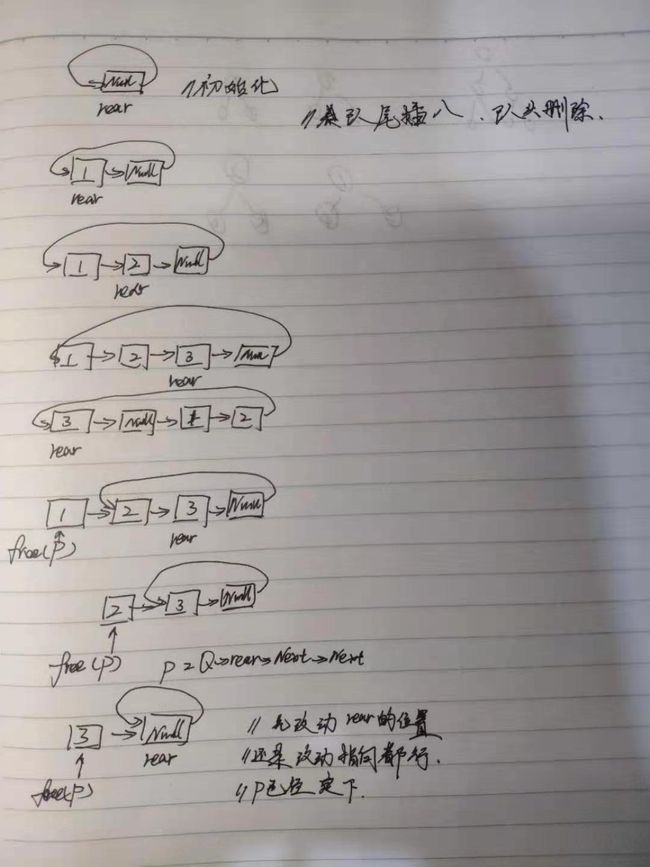 Null
rear //初始化
//是队尾插入、队头删除.
1 Null
rear
1 2 Null
rear
1 2 3 Null
rear
3 Null 1 2
rear
1 2 3 Null
free(P) rear
2 3 Null
free(P) P = Q→rear→Next→Next
3 Null //先改动rear的位置
rear //还是改动指向都行.
free(P) //P已经定下.